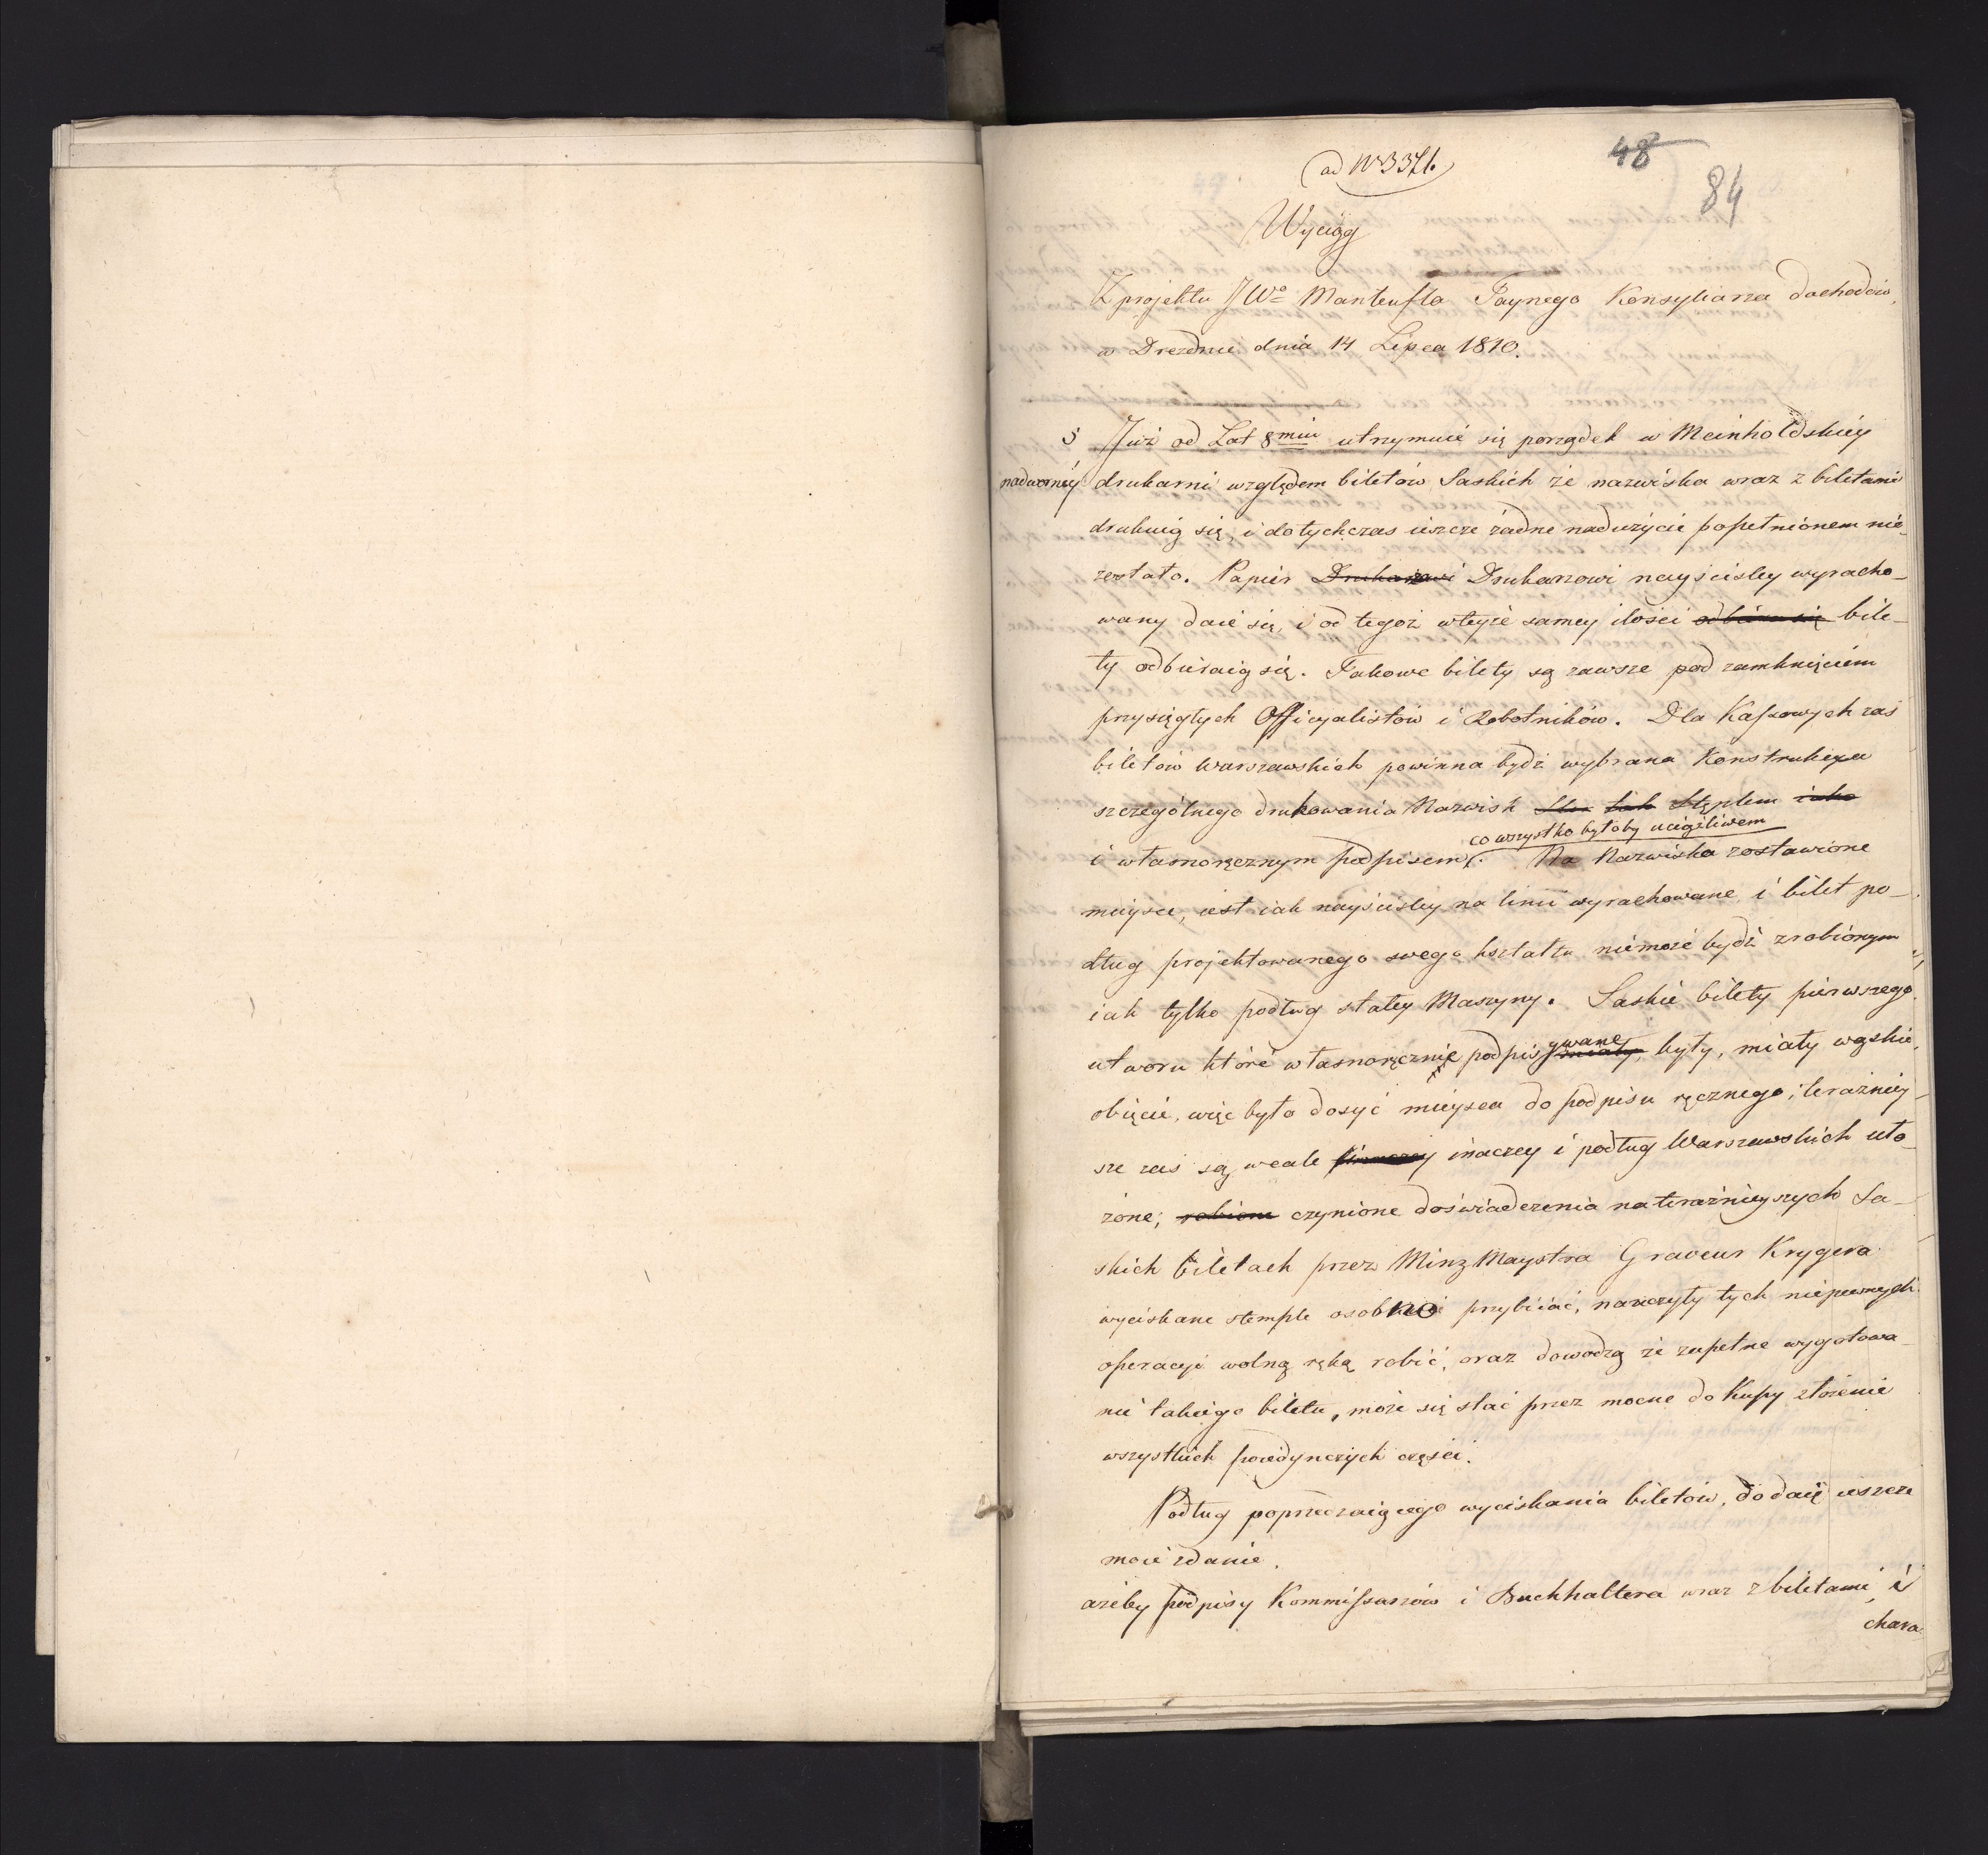 ad No 3371.
48
84
Wyciąg
Z projektu JWo Manteufla Taynego Konsyliarza dochodów,
w Dreznie dnia 14 Lipca 1810.
§ Już od Lat 8miu utrzymuie się porządek w Meinholdskiey
nadwornéy drukarni względem biletów Saskich że nazwiska wraz z biletami
drukuią się, i dotychczas ieszcze żadne nadużycie popełnionem nie
zostało. Papier Drukarzowi Drukarzowi nayściśley wyracho-
wany daie się, i od tegoż wteyże samey ilości odbiera się bile-
ty odbieraią się. Takowe bilety są zawsze pod zamknięciem
przysięgłych Officyalistów i Robotników. Dla Kassowych zaś
biletów Warszawskich powinna bydź wybrana Konstrukcya
szczególnego drukowania Nazwisk tak Stęplem iako
co wszystko byłoby uciążliwem
i własnoręcznym podpisem. Na Nazwiska zostawione
mieysce, iest iak nayściśley na linii wyrachowane, i bilet po-
dług projektowanego swego kształtu niemoże bydź zrobionym
iak tylko podług stałey Maszyny. Saskie bilety pierwszego
utworu które własnoręcznie podpisywane miały były, miały wąskie
obięcie, więc było dosyć mieysca do podpisu ręcznego; teraźniey
sze zaś są wcale inaczey i podług Warszawskich uło-
żone; robione czynione doświadczenia na teraźnieyszych Sa-
skich biletach przez Minz Maystra Graveur Krygera
wyciskane stemple osobno przybiiać, nauczyły tych niepewnych
operacyi wolną ręką robić, oraz dowodzą że zupełne wygotowa-
nie takiego biletu, może się stać przez mocne do Kupy złożenie
wszystkich poiedynczych części.
Podług poprzedzaiącego wyciskania biletów, dodaię ieszcze
moie zdanie.
ażeby podpisy Kommissarzów i Buchhaltera wraz z biletami, i
chara